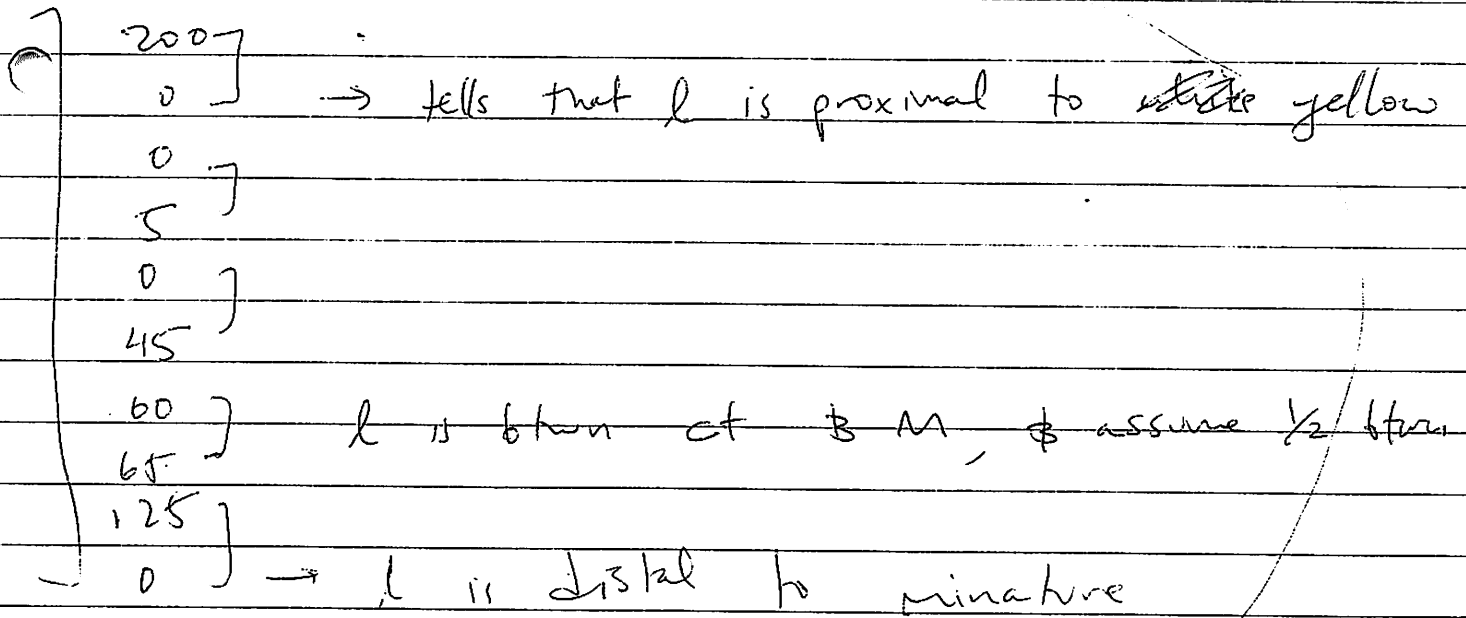 200
0 → tells that l is proximal to yellow
0
5
0
45
60
65 l is btwn ct & M, & assume 1/2 btwn
125
0 → l is distal to minature